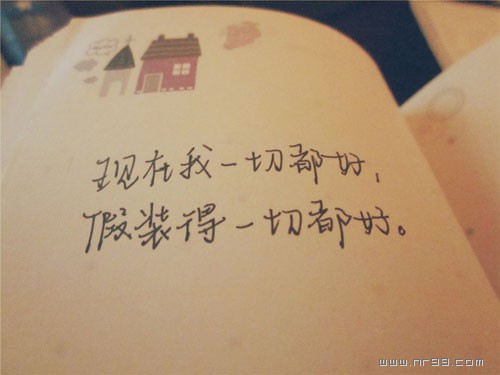 现在我一切都好，
假装得一切都好。
www.nr99.com